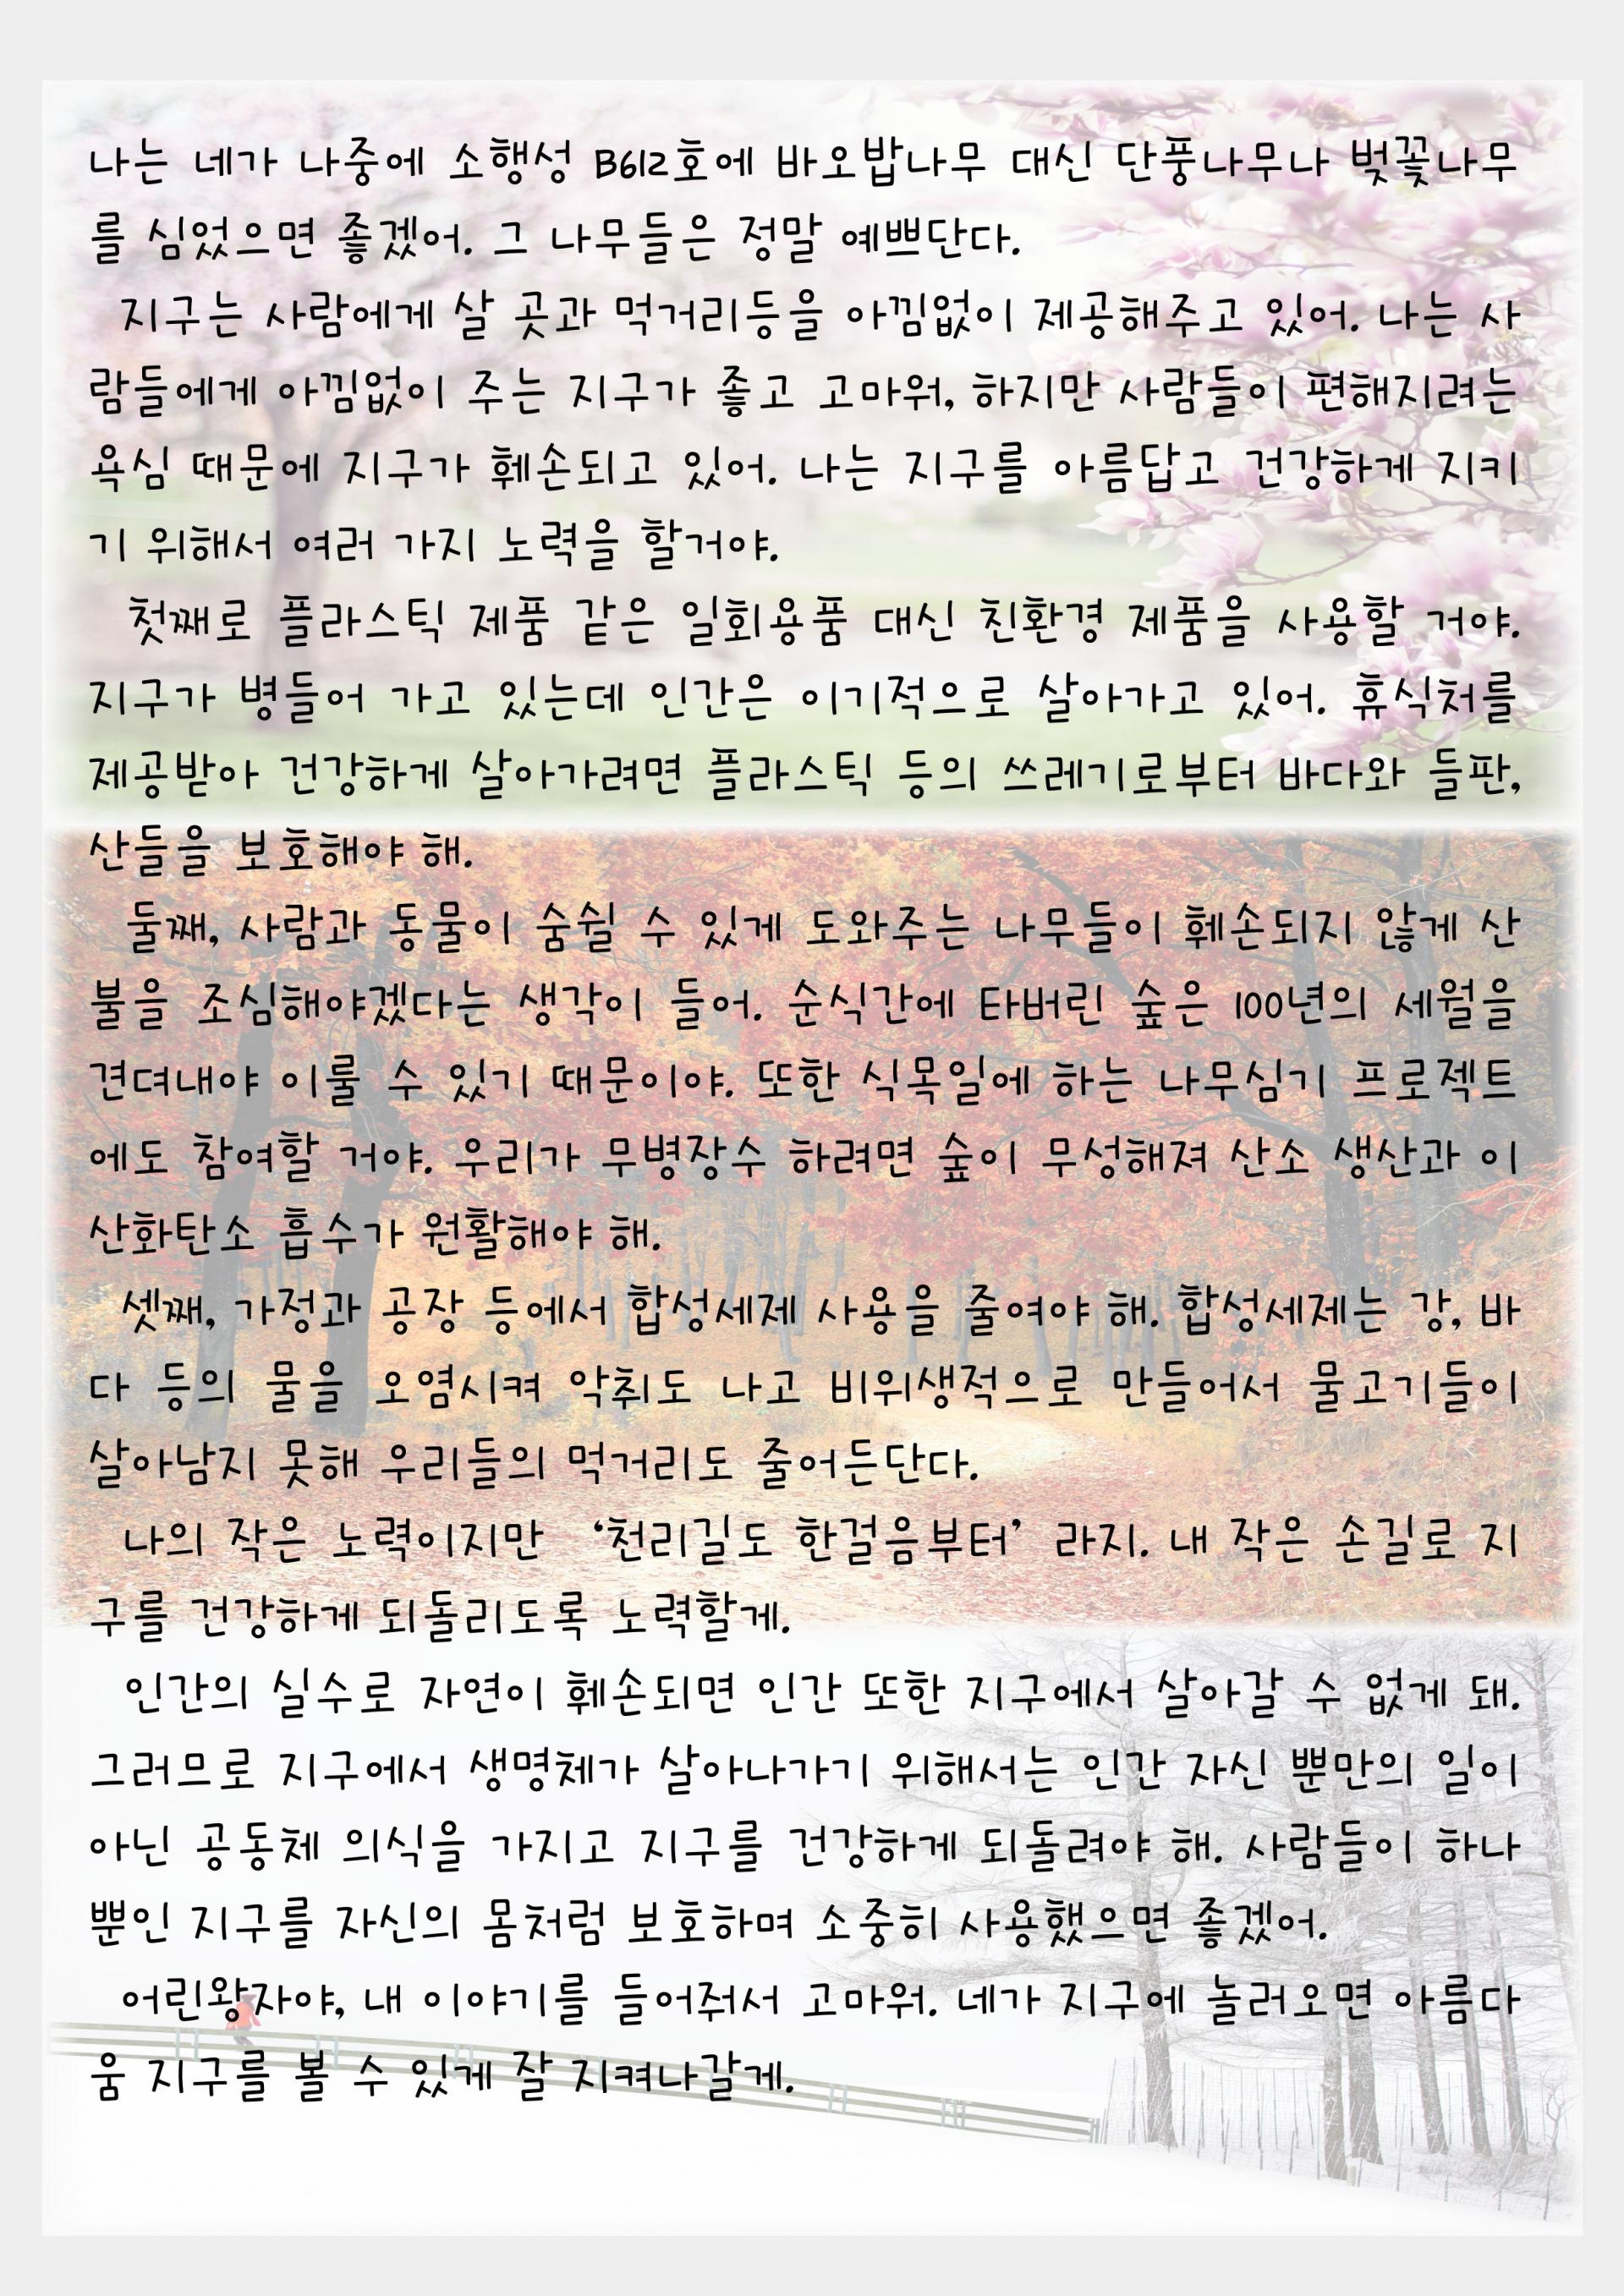 나는 네가 나중에 소행성 B612호에 바오밥나무 대신 단풍나무나 벚꽃나무
를 심었으면 좋겠어. 그 나무들은 정말 예쁘단다.
지구는 사람에게 살 곳과 먹거리등을 아낌없이 제공해주고 있어. 나는 사
람들에게 아낌없이 주는 지구가 좋고 고마워, 하지만 사람들이 편해지려는
욕심 때문에 지구가 훼손되고 있어. 나는 지구를 아름답고 건강하게 지키
기 위해서 여러 가지 노력을 할거야.
첫째로 플라스틱 제품 같은 일회용품 대신 친환경 제품을 사용할 거야.
지구가 병들어 가고 있는데 인간은 이기적으로 살아가고 있어. 휴식처를
제공받아 건강하게 살아가려면 플라스틱 등의 쓰레기로부터 바다와 들판,
산들을 보호해야 해.
둘째, 사람과 동물이 숨쉴 수 있게 도와주는 나무들이 훼손되지 않게 산
불을 조심해야겠다는 생각이 들어. 순식간에 타버린 숲은 100년의 세월을
견뎌내야 이룰 수 있기 때문이야. 또한 식목일에 하는 나무심기 프로젝트
에도 참여할 거야. 우리가 무병장수 하려면 숲이 무성해져 산소 생산과 이
산화탄소 흡수가 원활해야 해.
셋째, 가정과 공장 등에서 합성세제 사용을 줄여야 해. 합성세제는 강, 바
다 등의 물을 오염시켜 악취도 나고 비위생적으로 만들어서 물고기들이
살아남지 못해 우리들의 먹거리도 줄어든단다.
나의 작은 노력이지만 ‘천리길도 한걸음부터’ 라지. 내 작은 손길로 지
구를 건강하게 되돌리도록 노력할게.
인간의 실수로 자연이 훼손되면 인간 또한 지구에서 살아갈 수 없게 돼.
그러므로 지구에서 생명체가 살아나가기 위해서는 인간 자신 뿐만의 일이
아닌 공동체 의식을 가지고 지구를 건강하게 되돌려야 해. 사람들이 하나
뿐인 지구를 자신의 몸처럼 보호하며 소중히 사용했으면 좋겠어.
어린왕자야, 내 이야기를 들어줘서 고마워. 네가 지구에 놀러오면 아름다
움 지구를 볼 수 있게 잘 지켜나갈게.